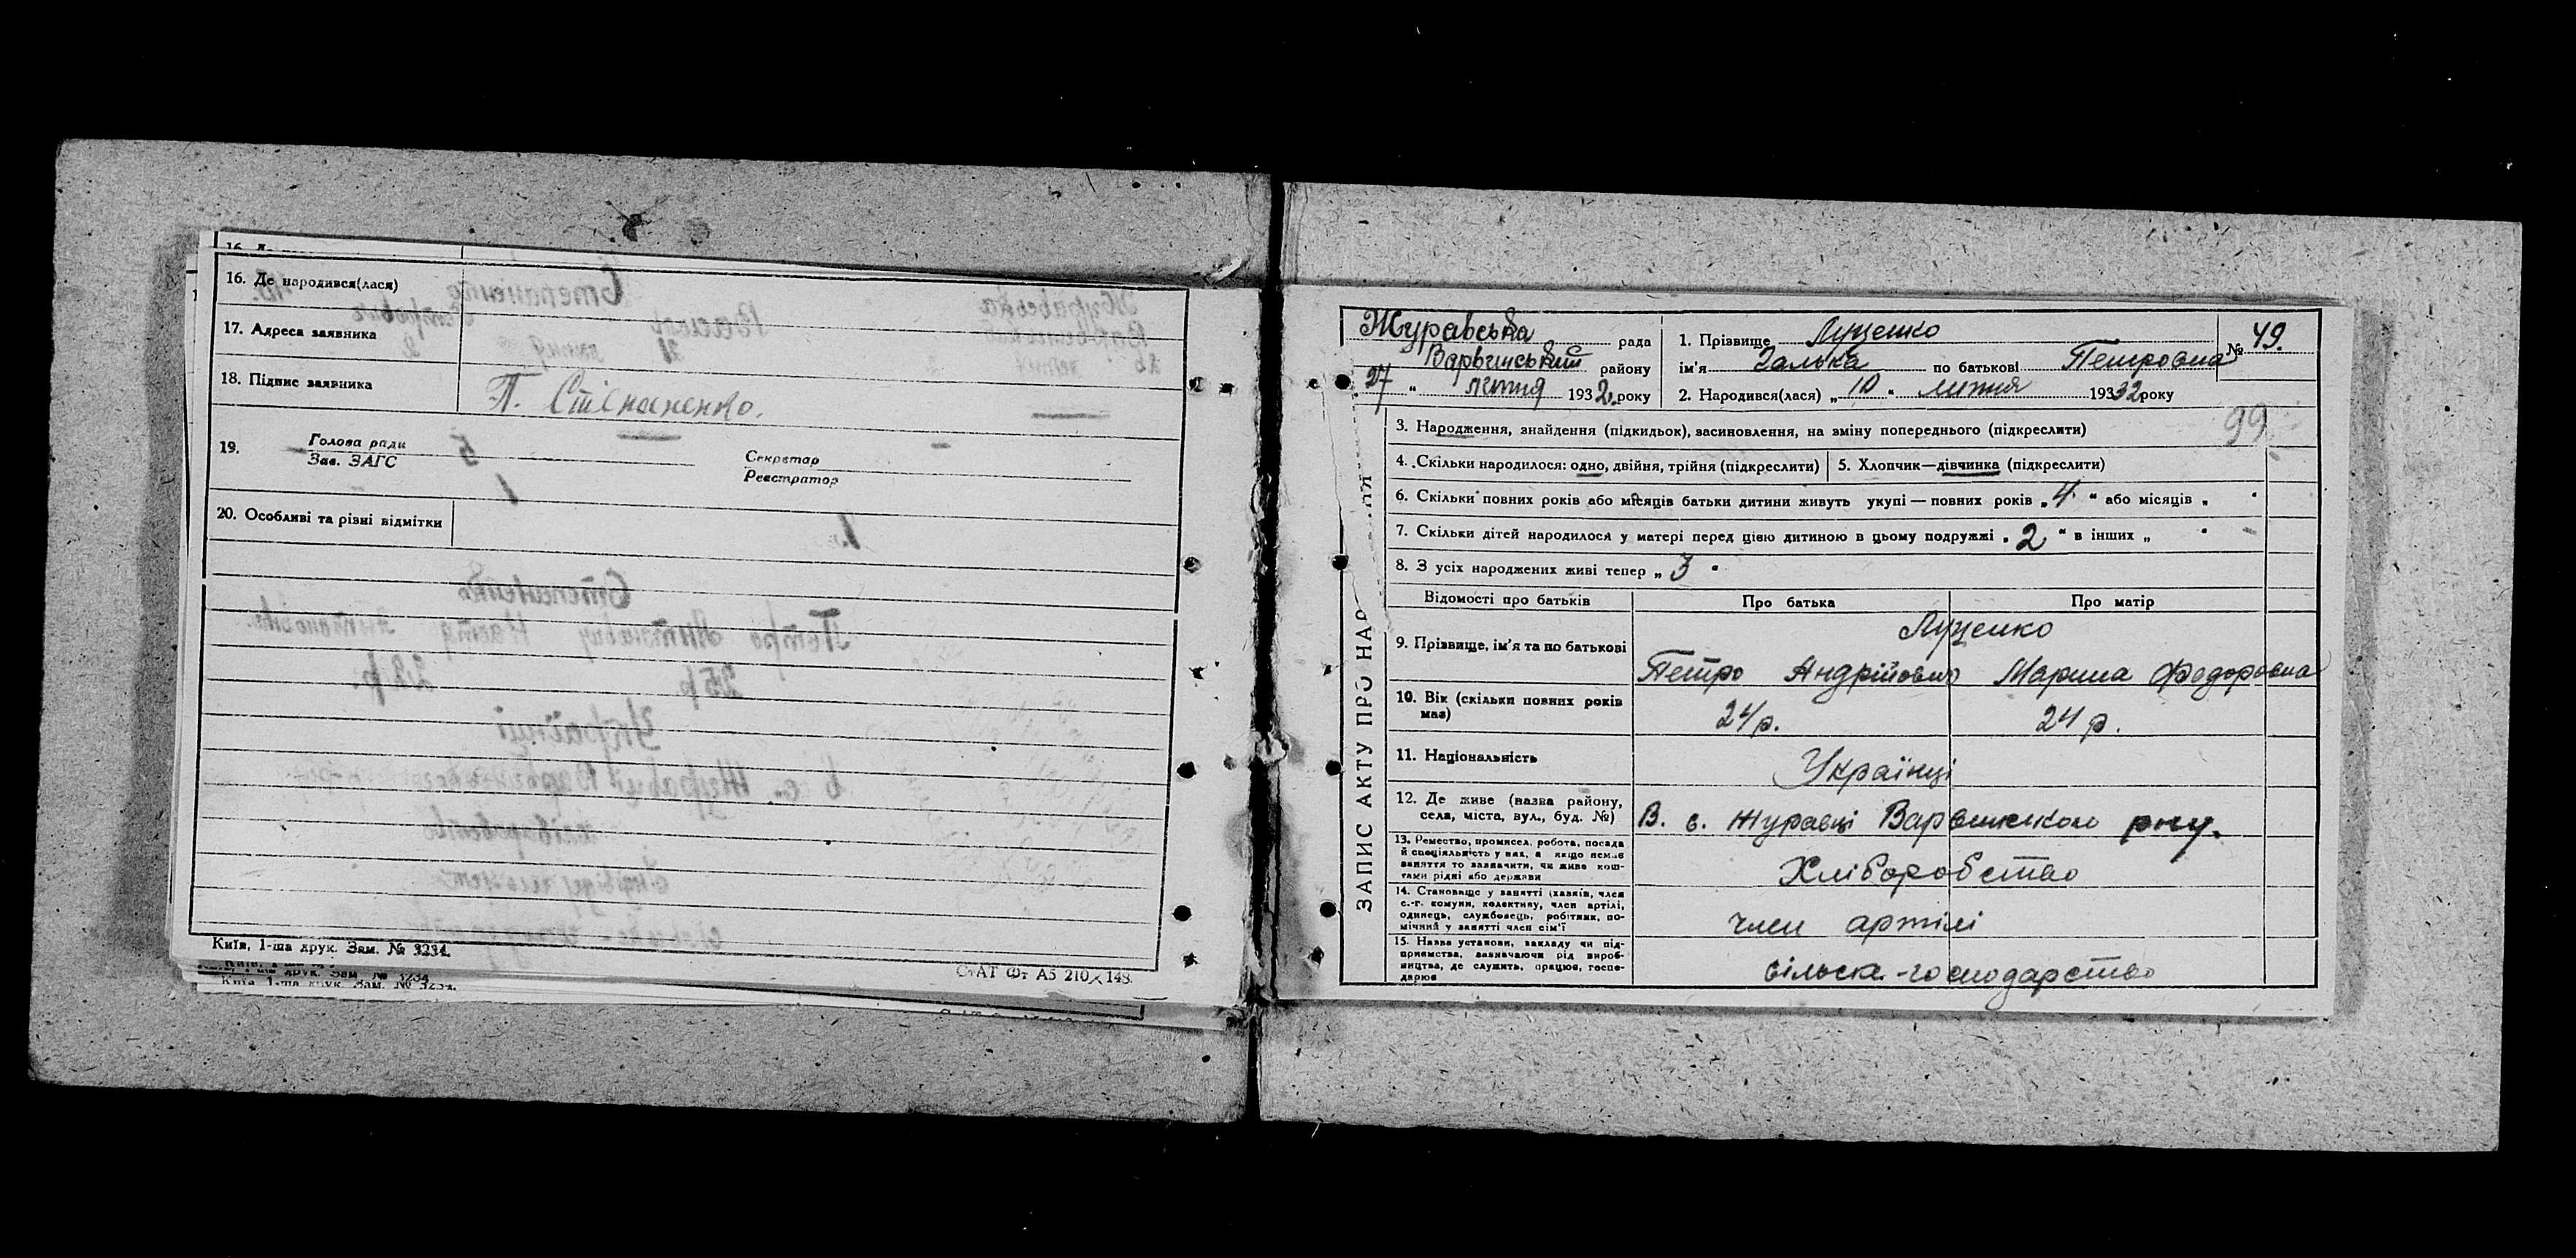 16. Де народився(лася)
17. Адреса заявника
18. Підпис заявника П. Стіпаненко.
19. Голова ради Секретар
Зав. ЗАГС Реєстратор
20. Особливі та різні відмітки
Київ, 1-ша друк. Зам. № 3234.
СтАТ Фт А5 210×148.
Київ, 1-ша друк. Зам. № 3234.
Журавська рада
Варвинський району
27 " лютня 1932 року
1. Прізвище Луценко
ім'я Галька по батькові Петровна
2. Народився(лася) „ 10 " лютня 19332 року
№ 49.
99
ЗАПИС АКТУ ПРО НАР
3. Народження, знайдення (підкидьок), засиновлення, на зміну попереднього (підкреслити)
4. Скільки народилося: одно, двійня, трійня (підкреслити) 5. Хлопчик—дівчинка (підкреслити)
6. Скільки повних років або місяців батьки дитини живуть укупі — повних років „ 4 " або місяців „ "
7. Скільки дітей народилося у матері перед цією дитиною в цьому подружжі „ 2 " в інших „ " –
8. З усіх народжених живі тепер „ 3 "
Відомості про батьків Про батька Про матір
Луценко
9. Прізвище, ім'я та по батькові Петро Андрійович Марина Федоровна
10. Вік (скільки повних років має) 24 р. 24 р.
11. Національність Українці
12. Де живе (назва району, села, міста, вул., буд. №) В. с. Журавці Варвинського рну.
13. Ремество, промисел, робота, посада й спеціяльність у них, а якщо немає заняття то зазначити, чи живе коштами рідні або держави Хліборобство
14. Становище у занятті (хазяїн, член с.-г. комуни, колективу, член артілі, одинець, службовець, робітник, помічний у занятті член сім'ї член артілі
15. Назва установи, закладу чи підприємства, зазначаючи рід виробництва, де служить, працює, господарює сільська-господарство